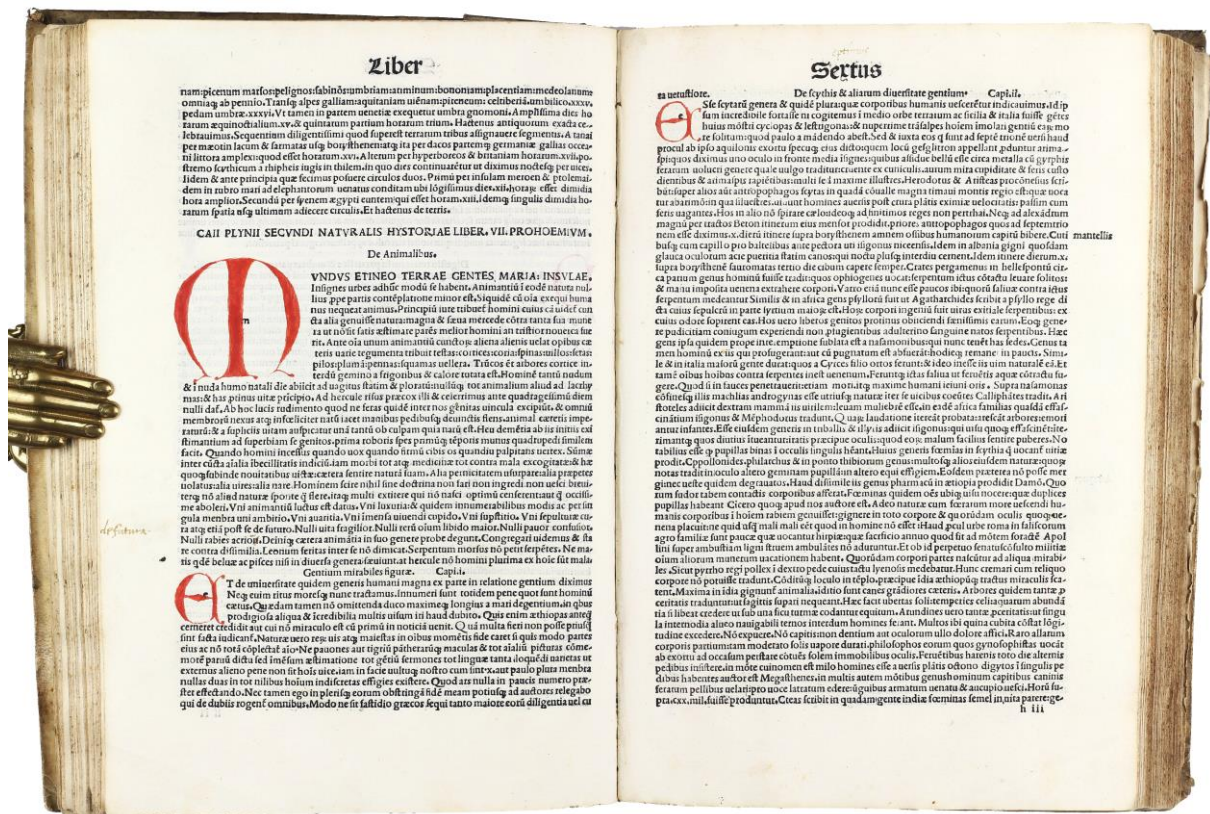 Liber
nam:picenum marsos:pelignos:sabinōs:umbriam:ariminum:bononiam:placentiam:mediolanum
omniaq; ab pennio. Transq; alpes galliam:aquitaniam uiēnam:pireneum: celtiberiā.umbilico.xxxv.
pedum umbræ.xxxvi. Vt tamen in partem uenetiæ exequetur umbra gnomoni. Amplissima dies ho
rarum æquinoctialium.xv.& quintarum partium horarum trium. Hactenus antiquorum exacta ce-
lebrauimus. Sequentium diligentissimi quod superest terrarum tribus assignauere segmentis. A tanai
per mæotin lacum & sarmatas usq; borysthenem:atq; ita per dacos partemq; germaniæ gallias occea-
ni littora amplexi:quod esset horarum.xvi. Alterum per hyperboreos & britaniam horarum.xvii.po-
stremo scythicum a rhipheis iugis in thilem.in quo dies continuarētur ut diximus noctesq; per uices.
Iidem & ante principia quæ fecimus posuere circulos duos. Primū per insulam meroen & ptolemai-
dem in rubro mari ad elephantorum uenatus conditam ubi lōgissimus dies.xii.horaȩ esset dimidia
hora amplior. Secundū per syenem ægypti euntem:qui esset horarum.xiii. Idemq; singulis dimidia ho-
rarum spatia usq; ultimum adiecere circulis. Et hactenus de terris.
CAII PLYNII SECVNDI NATVRALIS HYSTORIAE LIBER. VII. PROHOEMIVM.
De Animalibus.
M VNDVS ET IN EO TERRAE GENTES MARIA: INSVLAE.
Insignes urbes adhūc modū se habent. Animantiū ī eodē natura nul-
lius ,ppe partis contēplatione minor est. Siquidē cū oīa exequi huma
nus nequeat animus. Principiū iure tribuet hominī cuius cā uidet cun
cta alia genuisse natura:magna & sæua mercede cōtra tanta sua mune
ra ut nō sit satis æstimare parēs melior homini an tristior nouerca fue
rit. Ante oīa unum animantiū cunctoȩ aliena alienis uelat opibus cæ
teris uarie tegumenta tribuit testas:cortices:coria:spinas:uillos:setas:
pilos:plumā:pennas:squamas uellera. Trūcos et arbores cortice in-
terdū gemino a frigoribus & calore tutata est. Hominē tantū nudum
& ī nuda humo natali die abiicit ad uagitus statim & ploratū:nullūq; tot animalium aliud ad lacrhy
mas:& has ,ptinus uitæ prīcipio. Ad hercule risus præcox illi & celerrimus ante quadragesimū diem
nulli daf. Ab hoc lucis rudimento quod ne feras quidē inter nos gēnitas uincula excipiūt & omniū
membrorū nexus atq; infœliciter natū iacet manibus pedibusq; deuictis flens.animal cæteris impe-
raturū:& a supliciis uitam auspicatur unā tantū ob culpam quia natū est. Heu demētia ab iis initiis exi
stimantium ad superbiam se genitos.prima roboris spes primūq; tēporis munus quadrupedi similem
facit. Quando homini incessus quando uox quando firmū cibis os quandiu palpitans uertex. Sūmæ
inter cūcta aīalia ibecillitatis indiciū.iam morbi tot atq; medicinæ tot contra mala excogitatæ:& hæ
quoq; subinde nouitatibus uictæ:cætera sentire naturā suam. Alia pernicitatem usurpare:alia præpetes
uolatus:alia uires:alia nare. Hominem scire nihil sine doctrina non fari non ingredi non uesci breui-
terq; nō aliud naturæ sponte q̄ flere.itaq; multi extitere qui nō nasci optimū censerent:aut q̄ occissi-
me aboleri. Vni animantiū luctus est datus. Vni luxuria:& quidem innumerabilibus modis ac per sin
gula menbra uni ambitio. Vni auaritia. Vni imensa uiuendi cupido. Vni supstitio. Vni sepulturæ cu-
ra atq; etiā post se de futuro. Nulli uita fragilior. Nulli rerū oium libido maior. Nulli pauor confusior.
Nulli rabies acrior. Deniq; cætera animātia in suo genere probe degunt. Congregari uidemus & sta
re contra dissimilia. Leonum feritas inter se nō dimicat. Serpentum morsus nō petit serpētes. Ne ma-
ris qdē beluæ ac pisces nisi in diuersa genera sæuiunt.at hercule nō homini plurima ex hoīe sūt mala.
de futura
Gentium mirabiles figuræ. Capi.i.
E T de uniuersitate quidem generis humani magna ex parte in relatione gentium diximus
Neq; enim ritus moresq; nunc tractamus. Innumeri sunt totidem pene quot sunt hominū
cœtus. Quædam tamen nō omittenda duco maximeq; longius a mari degentium.in qbus
prodigiosa aliqua & īcredibilia multis uisum iri haud dubito. Quis enim æthiopas anteq̄
cerneret credidit aut cui nō miraculo est cū primū in noticiā uenit. Q uā multa fieri non posse priusq̄
sint facta iudicanf. Naturæ uero reȩ uis atq; maiestas in oibus momētis fide caret si quis modo partes
eius ac nō totā cōplectat aīo. Ne pauones aut tigriū pātherarūq; maculas & tot aīaliū picturas cōme-
morē paruū dictu sed īmēsum æstimatione tot gētiū sermones tot linguæ tanta iloquēdi uarietas ut
externus alieno pene non sit hoīs uice.iam in facie uultuq; nostro cum sint.x.aut paulo plura menbra
nullas duas in tot milibus hoīum indiscretas effigies existere. Quod ars nulla in paucis numero præ-
stet effectando. Nec tamen ego in plerisq; eorum obstringā fidē meam potiusq; ad auctores relegabo
qui de dubiis rogent omnibus. Modo ne sit fastidio græcos sequi tanto maiore eorū diligentia uel cu
Sextus
ra uetustiore. De scythis & aliarum diuersitate gentium. Capi.ii.
E Sse scytarū genera & quidē plura:quæ corporibus humanis uescerētur indicauimus. Id ip
sum incredibile fortasse ni cogitemus ī medio orbe terrarum ac sicilia & italia fuisse gētes
huius mōstri cyclopas & lestrigonas:& nuperrime trāsalpes hoīem imolari gentiū eaȩ mo
re solitum:quod paulo a mādendo abest. Sed & iuxta eos q̄ sunt ad septētrionē uersi haud
procul ab ipso aquilonis exortu specuq; eius dictoquem locū gesgliton appellant ,pduntur arima-
spi:quos diximus uno oculo in fronte media īsignes:quibus assidue bellū esse circa metalla cū gryphis
ferarum uolucri genere quale uulgo traditur:eruente ex cuniculis.aurum mira cupiditate & feris custo
dientibus & arimaspis rapiētibus:multi se ī maxime illustres. Herodotus & Aristeas proconēsius scri-
būt:super alios aūt antropophagos scytas in quadā cōualle magna timaui montis regio est:quæ uoca
tur abarimō:in qua siluestres uiuunt homines auersis post crura plātis eximiæ uelocitatis: passim cum
feris uagantes. Hos in alio nō spirare cæloideoq; ad finitimos reges non pertrahi. Neq; ad alexādrum
magnū per tractos Beton itinerum eius mensor prodidit.priores antropophagos quos ad septemtrio
nem esse diximus.x.dierū itinere supra borysthenem amnem ossibus humanorum capitū bibere. Cuti
busq; cum capillo pro baltelibus ante pectora uti isigonus nicensis. Idem in albania gigni quosdam
mantellis
glauca oculorum acie pueritia statim canos:qui noctu plusq; interdiu cernent. Idem itinere dierum.x.
supra borysthenē sauromatas tertio die cibum capere semper. Crates pergamenus in hellespontū cir-
ca parium genus hominū fuisse tradit:quos ophiogenes uocat:serpentum ictus cōtactu leuare solitos:
& manu imposita uenena extrahere corpori. Varro etiā nunc esse paucos ibi:quorū saliuæ contra ictus
serpentum medeantur. Similis & in africa gens psyllorū fuit ut Agatharchides scribit a psyllo rege di
cta cuius sepulcrū in parte syrtium maioȩ est. Hoȩ corpori ingenitū fuit uirus exitiale serpentibus: ex
cuius odore sopirent eas. Hos uero liberos genitos protinus obiiciendi sæuissimis earum. Eoq; gene-
re pudicitiam coniugum experiendi non ,pfugientibus adulterino sanguine natos serpentibus. Hæc
gens ipsa quidem prope inte.emptione sublata est a nasamonibus:qui nunc tenēt has sedes. Genus ta
men hominū ex iis qui profugerant:aut cū pugnatum est abfuerāt:hodieq; remanet in paucis. Simi-
le & in italia marsorū genus durat:quos a Cyrces filio ortos ferunt:& ideo inesse iis uim naturalē eā. Et
tamē oībus hoībus contra serpentes inest uenenum. Feruntq; ictas saliua ut feruētis aquæ cōtactu fu-
gere. Quod si in fauces penetrauerit:etiam mori.atq; maxime humani ieiuni oris. Supra nasamonas
cōfinesq; illis machlias androgynas esse utriusq; naturæ iter se uicibus coeūtes Calliphātes tradit. Ari
stoteles adiicit dextram mammā iis uirilem:leuam muliebrē esse.in eadē africa familias quasdā effasci-
cinātium isigonus & Mēphodorus tradunt. Q uaȩ laudatione iterāt probata:arescāt arbores:emori
antur infantes. Esse eiusdem generis in triballis & illyriis adiicit isigonus:qui uisu quoq; effascinēt:ite-
rimantq; quos diutius ītueantur:iratis præcipue oculis:quod eoȩ malum facilius sentire puberes. No
tabilius esse q̄ pupillas binas ī occulis singulis hēant. Huius generis fœmias in scythia q̄ uocanf nitiæ
prodit. Cppollonides.philarchus & in ponto thibiorum genus:multosq; alios eiusdem naturæ:quoȩ
notas tradit:in oculo altero geminam pupillā:in altero equi effigiem. Eosdem præterea nō posse mer
gi:nec ueste quidem degrauatos. Haud dissimile iis genus pharnacū in ætiopia prodidit Damō. Quo
rum sudor tabem contactis corporibus afferat. Fœminas quidem oēs ubiq; uisu nocere:quæ duplices
pupillas habeant Cicero quoq; apud nos auctor est. Adeo naturæ cum ferarum more uescendi hu-
manis corporibus ī hoīem rabiem genuisset:gignere in toto corpore & quorūdam oculis quoq; ue-
nena placuit:ne quid usq̄ mali cēt quod in homine nō esset. Haud ,pcul urbe roma in faliscorum
agro familiæ sunt paucæ quæ uocantur hirpiæ:quæ sacrificio annuo quod fit ad mōtem soractē Apol
lini super ambustiam ligni struem ambulātes nō aduruntur. Et ob id perpetuo senatuscōsulto militiæ
oīum aliorum munerum uacationem habent. Quorūdam corpori partes nascūtur ad aliqua mirabi-
les. Sicut pyrrho regi pollex ī dextro pede cuius tactu lyenosis medebatur. Hunc cremari cum reliquo
corpore nō potuisse tradunt. Cōditūq; loculo in tēplo.præcipue īdia æthiopūq; tractus miraculis sca-
tent. Maxima in īdia gignunt animalia.iditio sunt canes grādiores cæteris. Arbores quidem tantæ ,p
ceritatis traduntur:ut sagittis supari nequeant. Hæc facit ubertas soli:temperies cæli:aquarum abundā
tia si libeat credere ut sub una ficu turmæ codantur equitum. Arundines uero tantæ ,pceritatis:ut singu
la internodia alueo nauigabili ternos interdum homines ferant. Multos ibi quina cubita cōstat lōgi-
tudine excedere. Nō expuere. Nō capitis:non dentium aut oculorum ullo dolore affici. Raro aliarum
corporis partium:tam moderato solis uapore durati.philosophos eorum quos gymnosophistas uocāt
ab exortu ad occasum perstare cōtuēs solem immobilibus oculis. Feruētibus harenis toto die alternis
pedibus insistere.in mōte cui nomen est milo homines esse auersis plātis octono digytos ī singulis pe
dibus habentes auctor est Megasthenes.in multis autem mōtibus genus hominum capitibus caninis
feratum pellibus uelari:pro uoce latratum edere:ūguibus armatum uenatu & aucupio uesci. Horū su-
pra.cxx.mil.fuisse produntur. Cteas scribit in quadam gente indiæ fœminas semel in uita parere:ge-
h iii